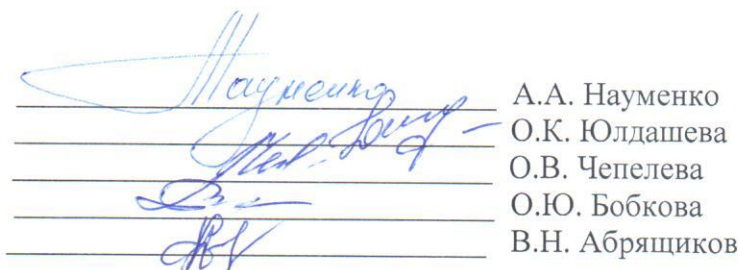 Науменко А.А. Науменко
О.К. Юлдашева
О.В. Чепелева
О.Ю. Бобкова
В.Н. Абрящиков